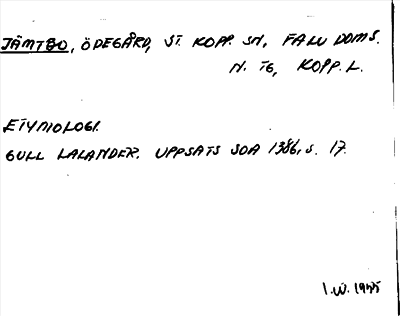 JÄMTBO, ÖDEGÅRD, ST. KOPP. SN, FALU DOMS.
N. TG, KOPP. L.
ETYMOLOGI.
GULL LALANDER. UPPSATS SOA 1386, S. 17.
I.W. 1955